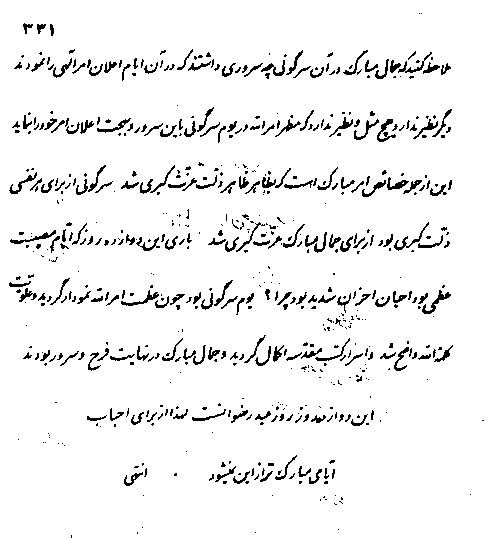 ۳۳۱
ملاحظه کنید که جمال مبارک در آن سرگونی چه سروری داشتند که در آن ایام اعلان امر الهی را نمودند
دیگر نظیر ندارد و هیچ مثل و نظیر ندارد که مظهر امر الله در یوم سرگونی باین سرور و بهجت اعلان امر خود را بنماید
این از جمله خصائص امر مبارک است که بظاهر ظاهر ذلت عزت کبری شد سرگونی از برای هر نفسی
ذلت کبری بود از برای جمال مبارک عزت کبری شد باری این دوازده روز که ایام مصیبت
عظمی بود احیان احزان شدید بود چرا ؟ یوم سرگونی بود چون عظمت امر الله نمودار گردید و علویت
کلمة الله واضح شد و اسرار کتب مقدسه اکمال گردید و جمال مبارک در نهایت فرح و سرور بودند
این دوازده روز روز عید رضوانست لهذا از برای احباب
آیامی مبارک تر از این نمیشود . انتهی